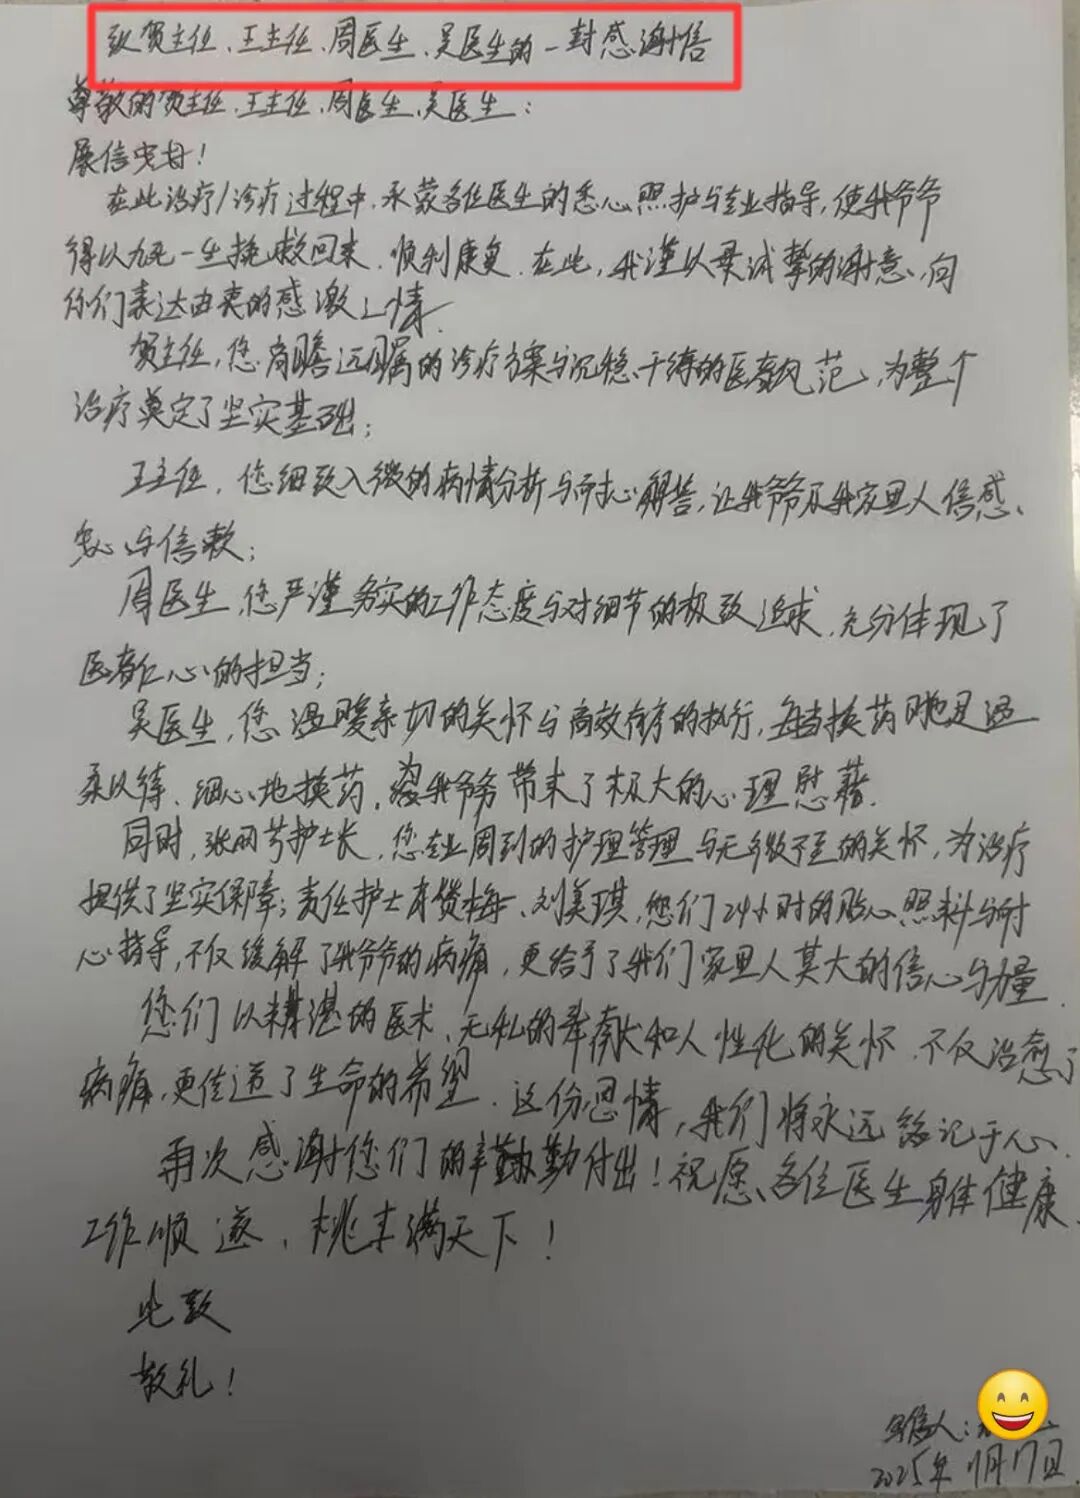 致贺主任、王主任、周医生、吴医生的一封感谢信
尊敬的贺主任、王主任、周医生、吴医生：
展信安好！
在此治疗/诊疗过程中，承蒙各位医生的悉心照护与专业指导，使我爷爷
得以九死一生抢救回来，顺利康复，在此，我谨以最诚挚的谢意，向
你们表达由衷的感激之情。
贺主任，您高瞻远瞩的诊疗方案与沉稳干练的医者风范，为整个
治疗奠定了坚实基础；
王主任，您细致入微的病情分析与耐心解答，让我爷爷及我家里人倍感
安心与信赖；
周医生，您严谨务实的工作态度与对细节的极致追求，充分体现了
医者仁心的担当；
吴医生，您温暖亲切的关怀与高效有序的执行，每当换药时总是温
柔以待、细心地换药，为我爷爷带来了极大的心理慰藉。
同时，张丽芳护士长，您专业周到的护理管理与无微不至的关怀，为治疗
提供了坚实保障；责任护士 梅、刘美琪，您们24小时的贴心照料与耐
心指导，不仅缓解了我爷爷的病痛，更给予了我们家里人莫大的信心与力量。
您们以精湛的医术，无私的奉献和人性化的关怀，不仅治愈了
病痛，更传递了生命的希望。这份恩情，我们将永远铭记于心。
再次感谢您们的辛勤付出！祝愿各位医生身体健康，
工作顺遂，桃李满天下！
此致
敬礼！
写信人：
2025年 月17日